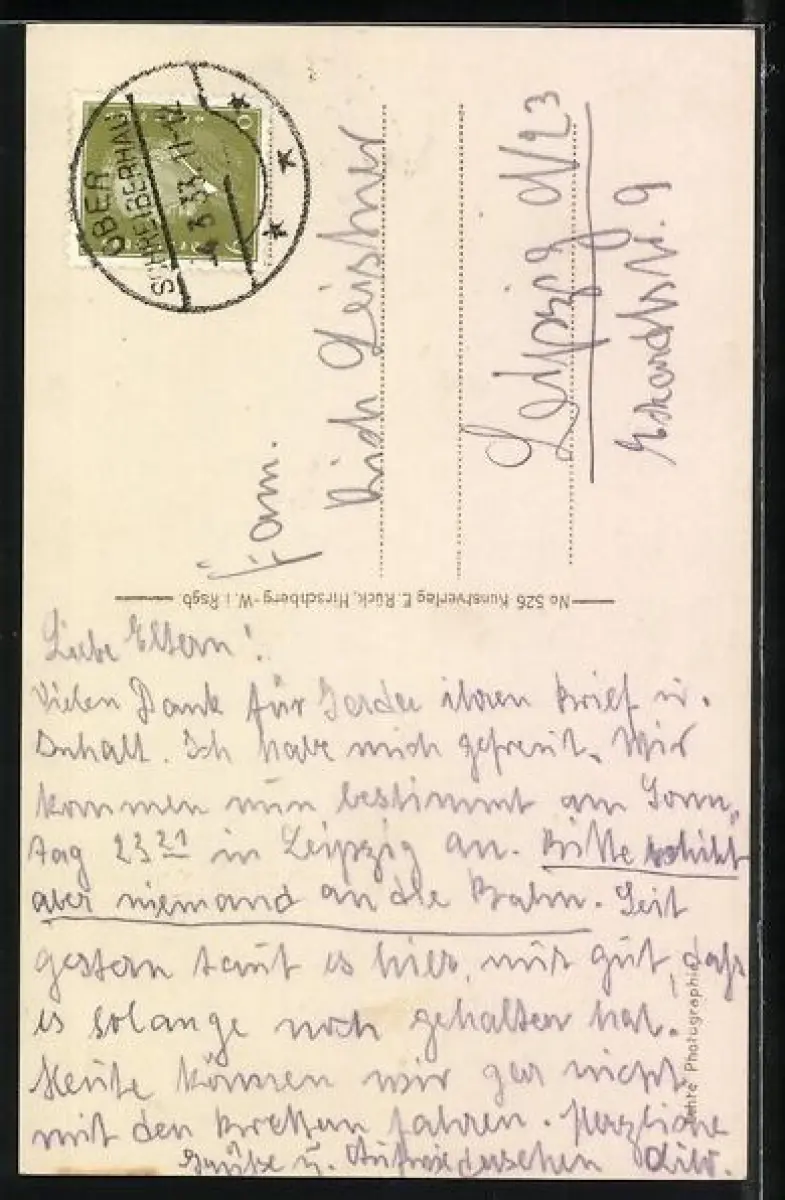 OBER
SCHREIBERHAU
4.3.33. 11-12
Fam.
Rich Leistner
Leipzig N 23
Str. 9
No 526 Kunstverlag E. Rück, Hirschberg-W. i. Rsgb.
Liebe Eltern!
Vielen Dank für Gerda ihren Brief u.
Inhalt. Ich habe mich gefreut. Wir
kommen nun bestimmt am Sonn-
tag 23 21 in Leipzig an. Bitte schikt
aber niemand an die Bahn. Seit
gestern taut es hier, nur gut, daß
es solange noch gehalten hat.
Heute können wir gar nicht
mit den Brettern fahren. Herzliche
Grüße u. Aufwiedersehen
Echte Photographie